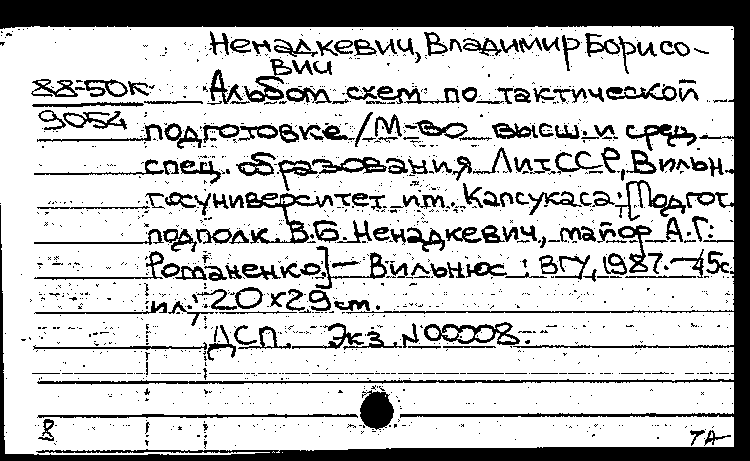 Ненадкевич, Владимир Борисо-
вич
88-50К Альбом схем по тактической
9054 подготовке / М-во высш. и сред.
спец. образования ЛитССР, Вильн.
госуниверситет им. Капсукаса; [Подгот.
подполк. В.Б. Ненадкевич, майор А.Г.
Романенко]. — Вильнюс : ВГУ, 1987. — 45 с.
ил.; 20х29 см.
ДСП. Экз. N00008.
8 ТА